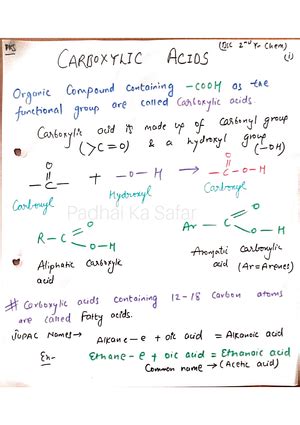 PKS
(BSc 2nd Yr Chem)
(i)
CARBOXYLIC ACIDS
Organic Compound containing -COOH as the
functional group are called Carboxylic acids.
Carboxylic acid is made up of carbonyl group
(>C=O) & a hydroxyl group (-OH)
-C- + -O-H → -C-O-H
O
Carbonyl Hydroxyl Carboxyl
Padhai Ka Safar
R-C O O-H
Ar-C O O-H
Aliphatic Carboxylic
acid
Aromatic Carboxylic
acid (Ar=Arenes)
# Carboxylic acids containing 12-18 Carbon atoms
are called Fatty acids.
IUPAC Names→ Alkane-e + oic acid = Alkanoic acid
Ex- Ethane-e + oic acid = Ethanoic acid
Common name→(Acetic acid)